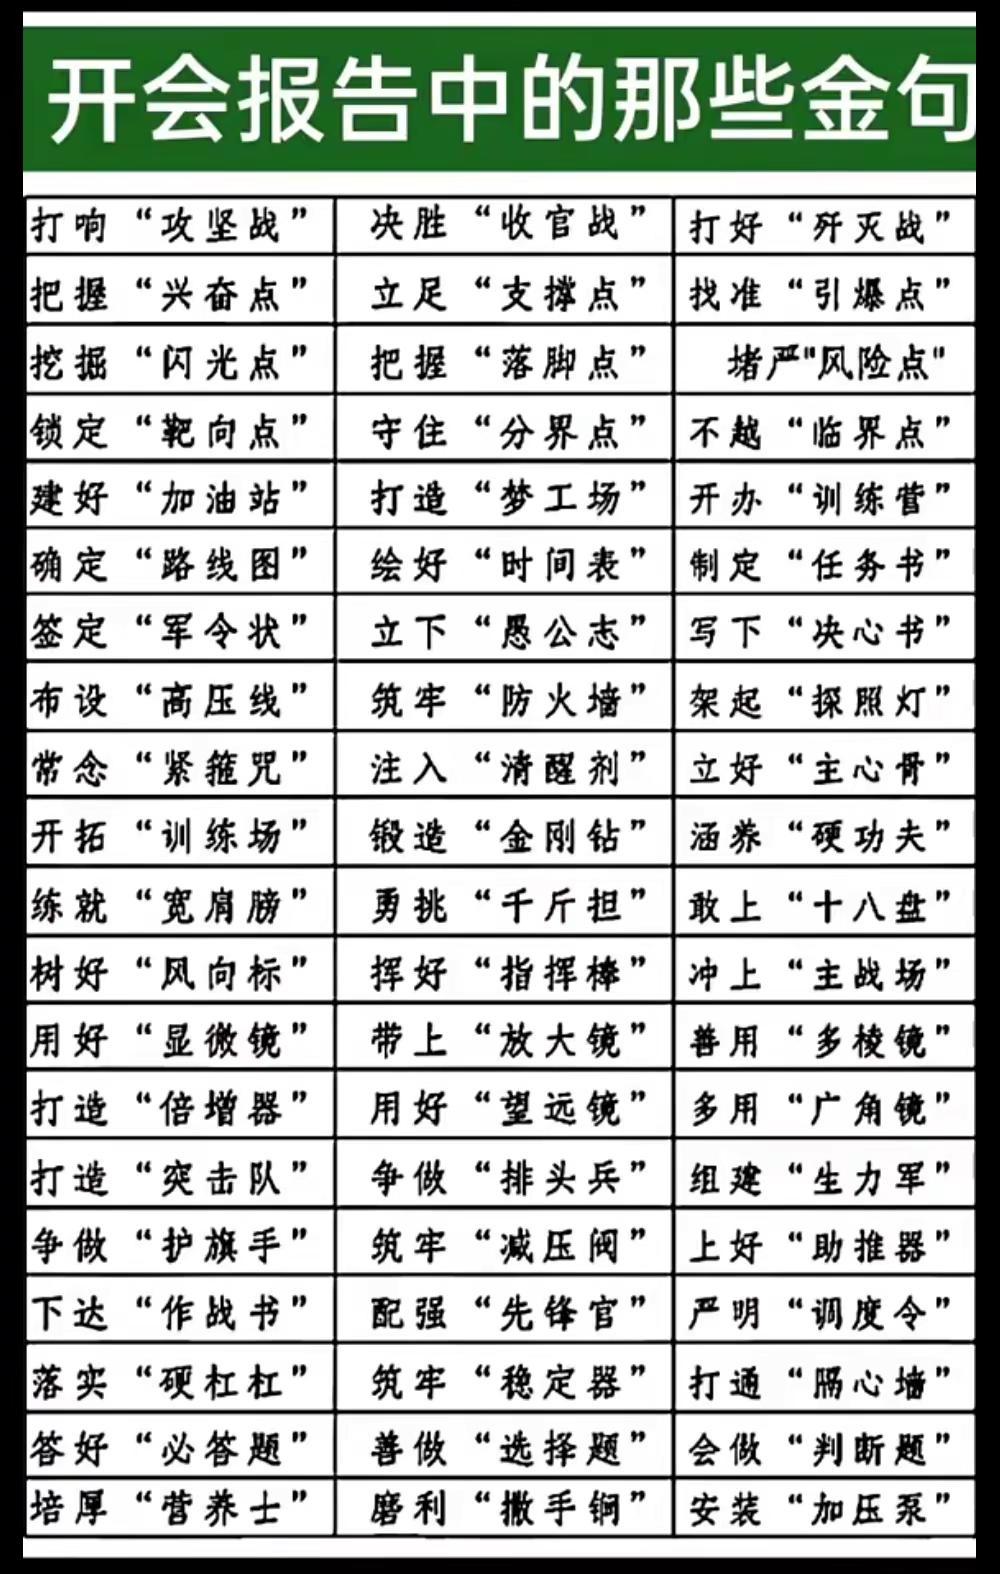 开会报告中的那些金句
打响“攻坚战” 决胜“收官战” 打好“歼灭战”
把握“兴奋点” 立足“支撑点” 找准“引爆点”
挖掘“闪光点” 把握“落脚点” 堵严"风险点"
锁定“靶向点” 守住“分界点” 不越“临界点”
建好“加油站” 打造“梦工场” 开办“训练营”
确定“路线图” 绘好“时间表” 制定“任务书”
签定“军令状” 立下“愚公志” 写下“决心书”
布设“高压线” 筑牢“防火墙” 架起“探照灯”
常念“紧箍咒” 注入“清醒剂” 立好“主心骨”
开拓“训练场” 锻造“金刚钻” 涵养“硬功夫”
练就“宽肩膀” 勇挑“千斤担” 敢上“十八盘”
树好“风向标” 挥好“指挥棒” 冲上“主战场”
用好“显微镜” 带上“放大镜” 善用“多棱镜”
打造“倍增器” 用好“望远镜” 多用“广角镜”
打造“突击队” 争做“排头兵” 组建“生力军”
争做“护旗手” 筑牢“减压阀” 上好“助推器”
下达“作战书” 配强“先锋官” 严明“调度令”
落实“硬杠杠” 筑牢“稳定器” 打通“隔心墙”
答好“必答题” 善做“选择题” 会做“判断题”
培厚“营养土” 磨利“撒手锏” 安装“加压泵”